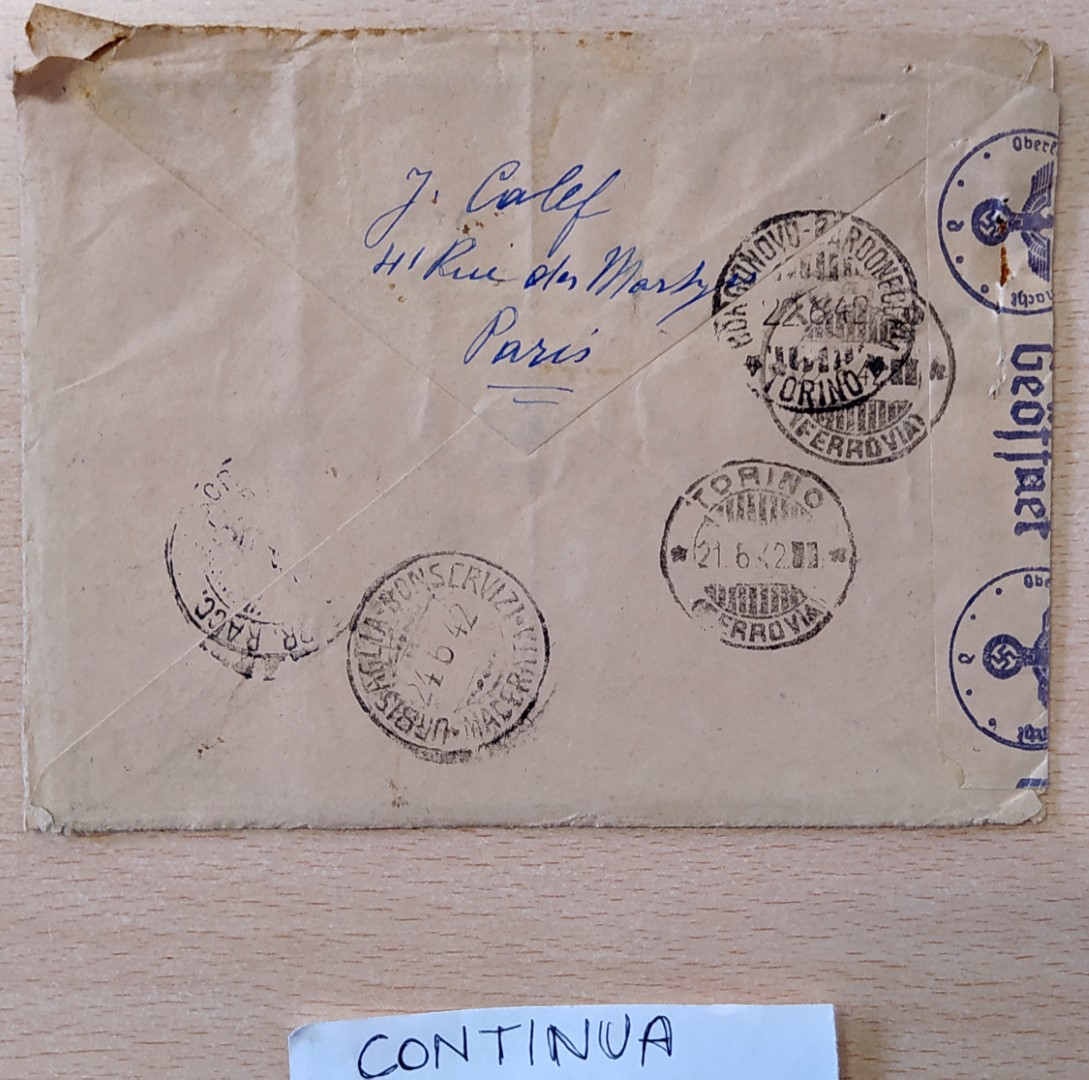 J. Calef
41 Rue des Martyrs
Paris
BORGONOVO-BARDONECCHIA
22.6.42
TORINO
(FERROVIA)
TORINO
21.6.42
(FERROVIA)
RR. RACC.
URBISAGLIA-BONSERVIZI
24 6 42
MACERATA
Ober
Geöffnet
Obe
CONTINUA